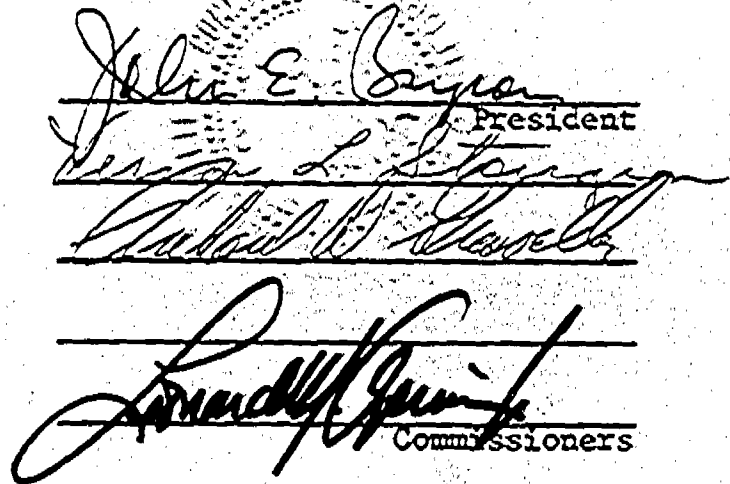 John E. Bryson
President
Vernon L. Sturgeon
Richard D. Gravelle
Leonard M.
Commissioners